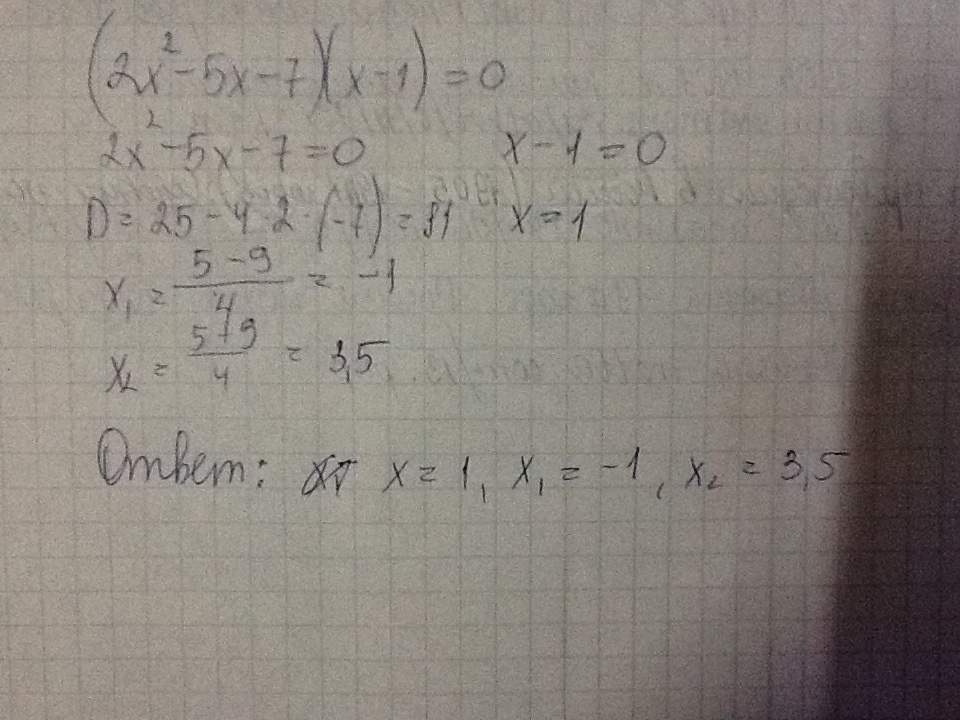 (2x²-5x-7)(x-1)=0
2x²-5x-7=0 x-1=0
D=25-4·2·(-7)=81 x=1
x₁ = (5-9)/4 = -1
x₂ = (5+9)/4 = 3,5
Ответ: x=1, x₁=-1, x₂=3,5